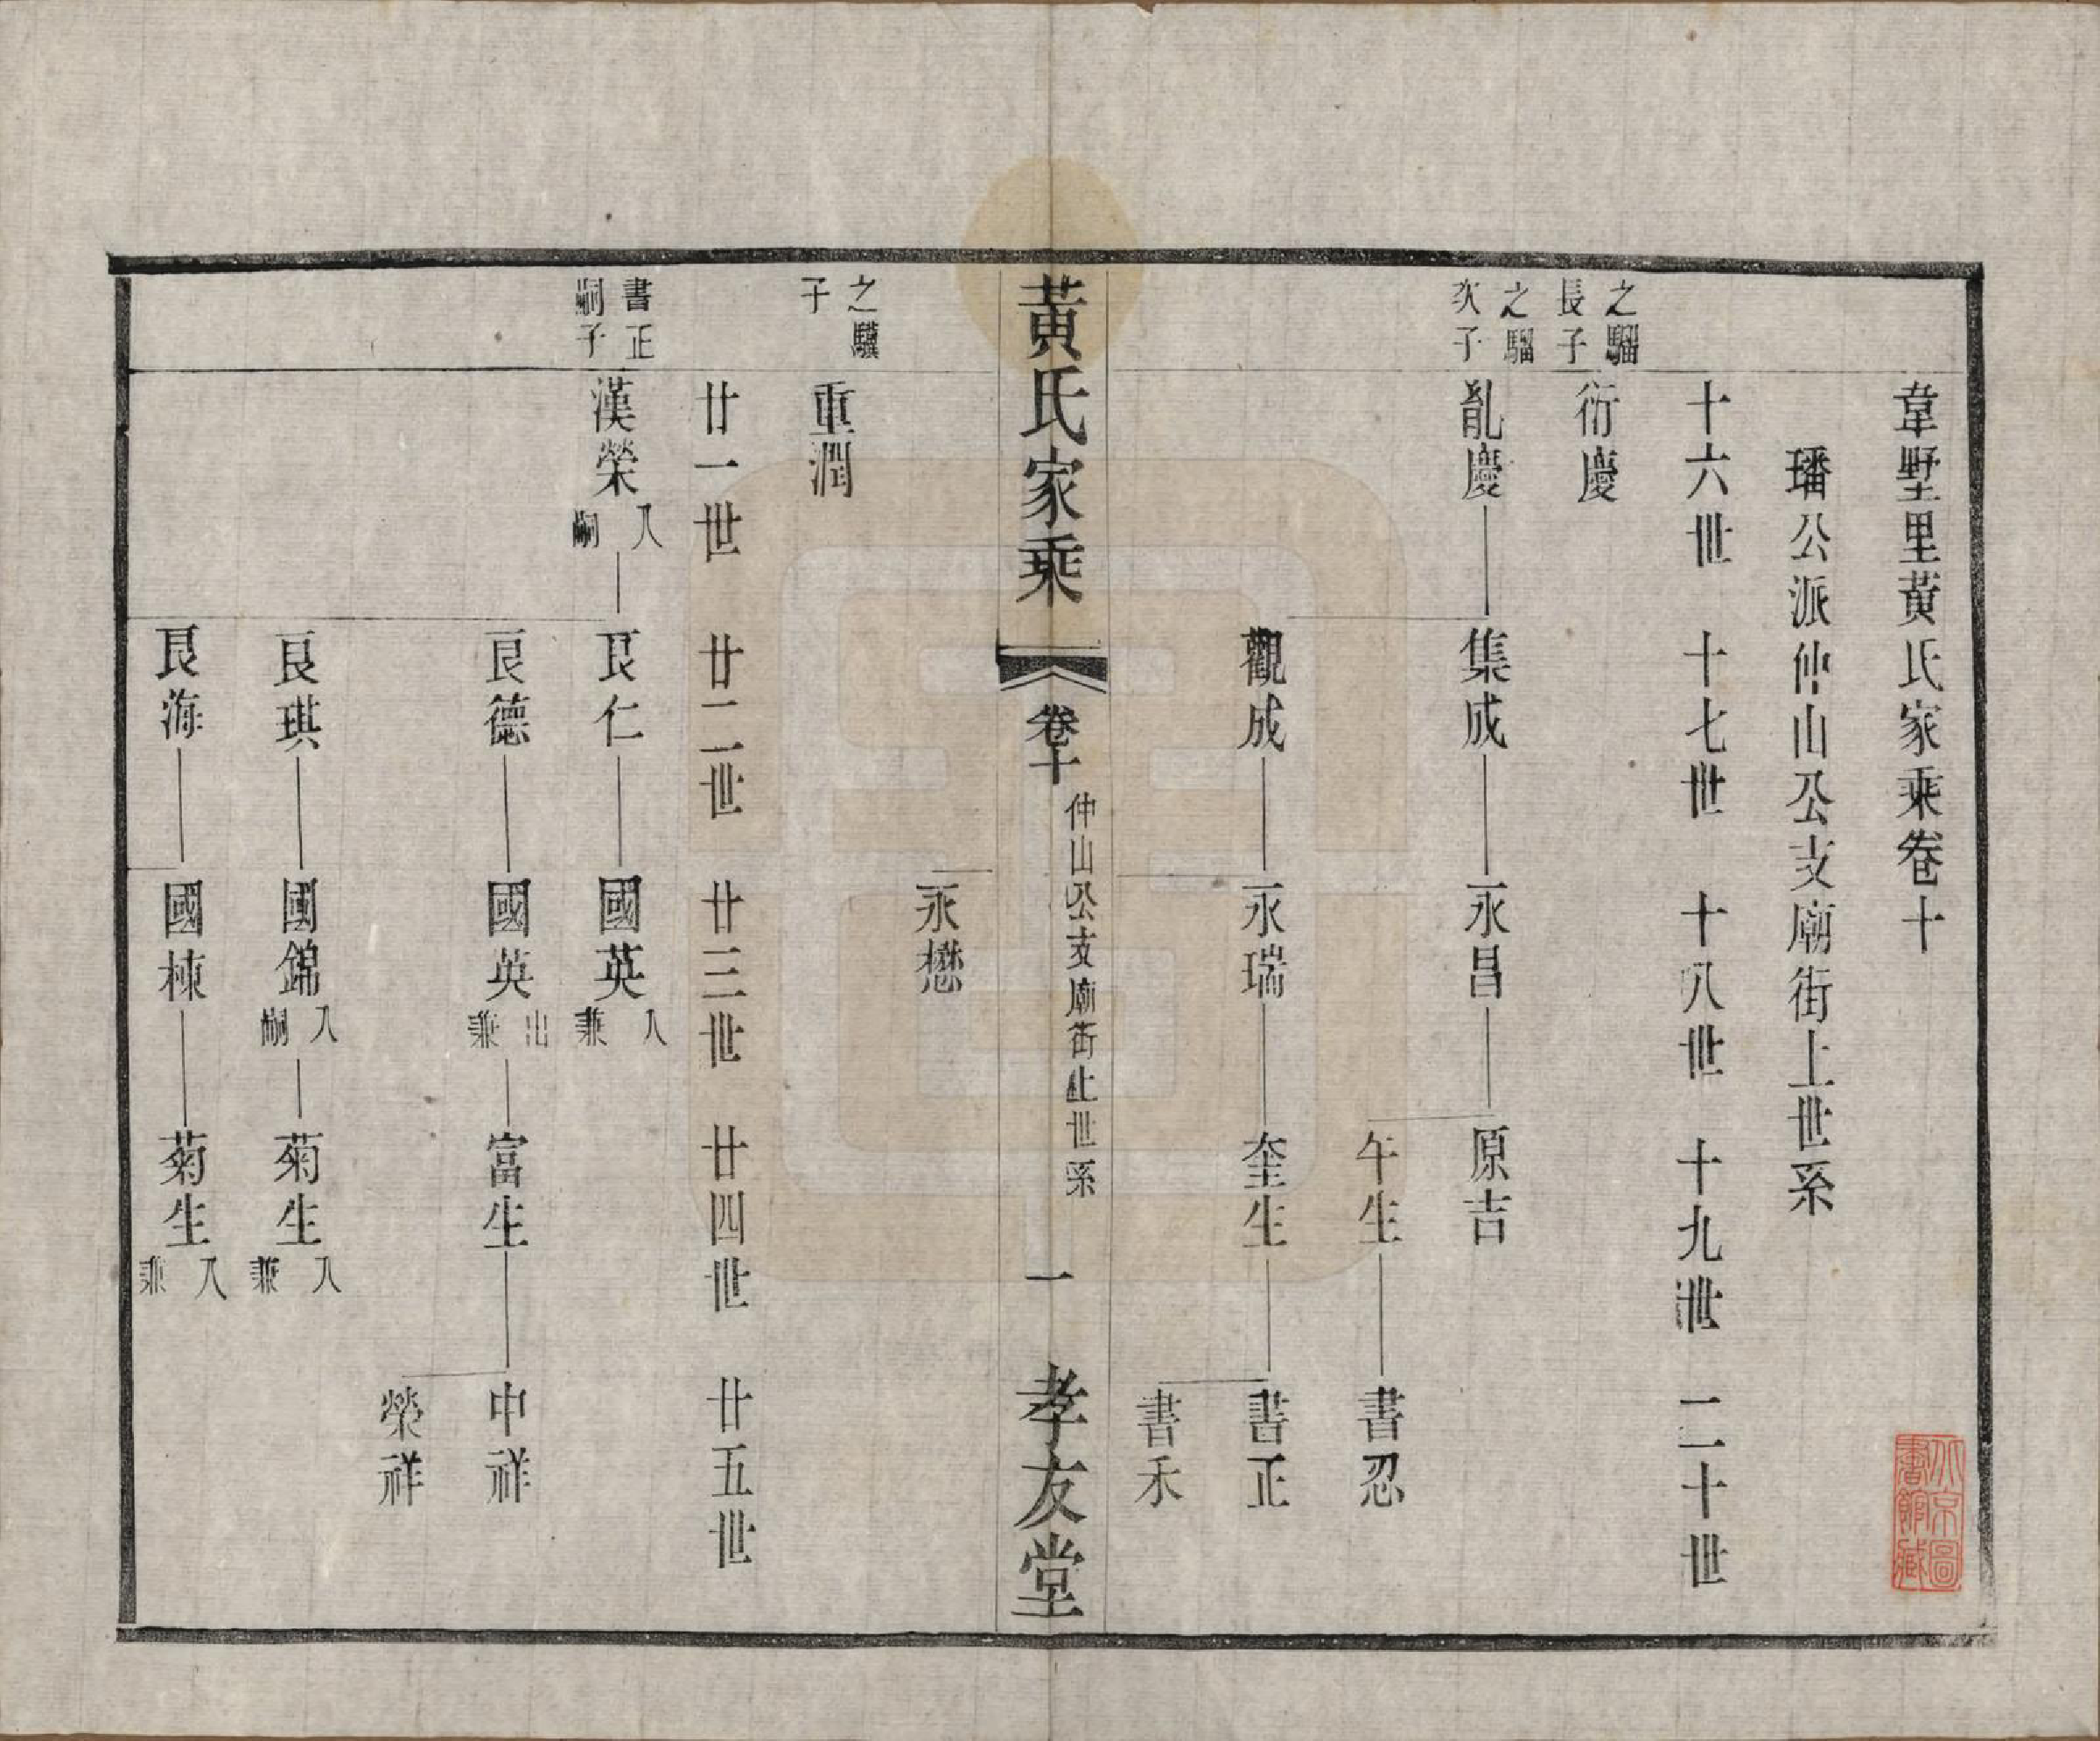 韋墅里黃氏家乘卷十
璠公派仲山公支廟街上世系
十六世　十七世　十八世　十九世　二十世
之騮長子　衍慶
之騮次子　胤慶　集成　永昌　原吉
午生　書忍
觀成　永瑞　奎生　書正
書禾
黃氏家乘　卷十　仲山公支廟街上世系　一　孝友堂
永懋
之驥子　重潤
廿一世　廿二世　廿三世　廿四世　廿五世
書正嗣子　漢榮入嗣　良仁　國英入兼
良德　國英出兼　富生　中祥
榮祥
良琪　國錦入嗣　菊生入兼
良海　國棟　菊生入兼
北京圖書館藏